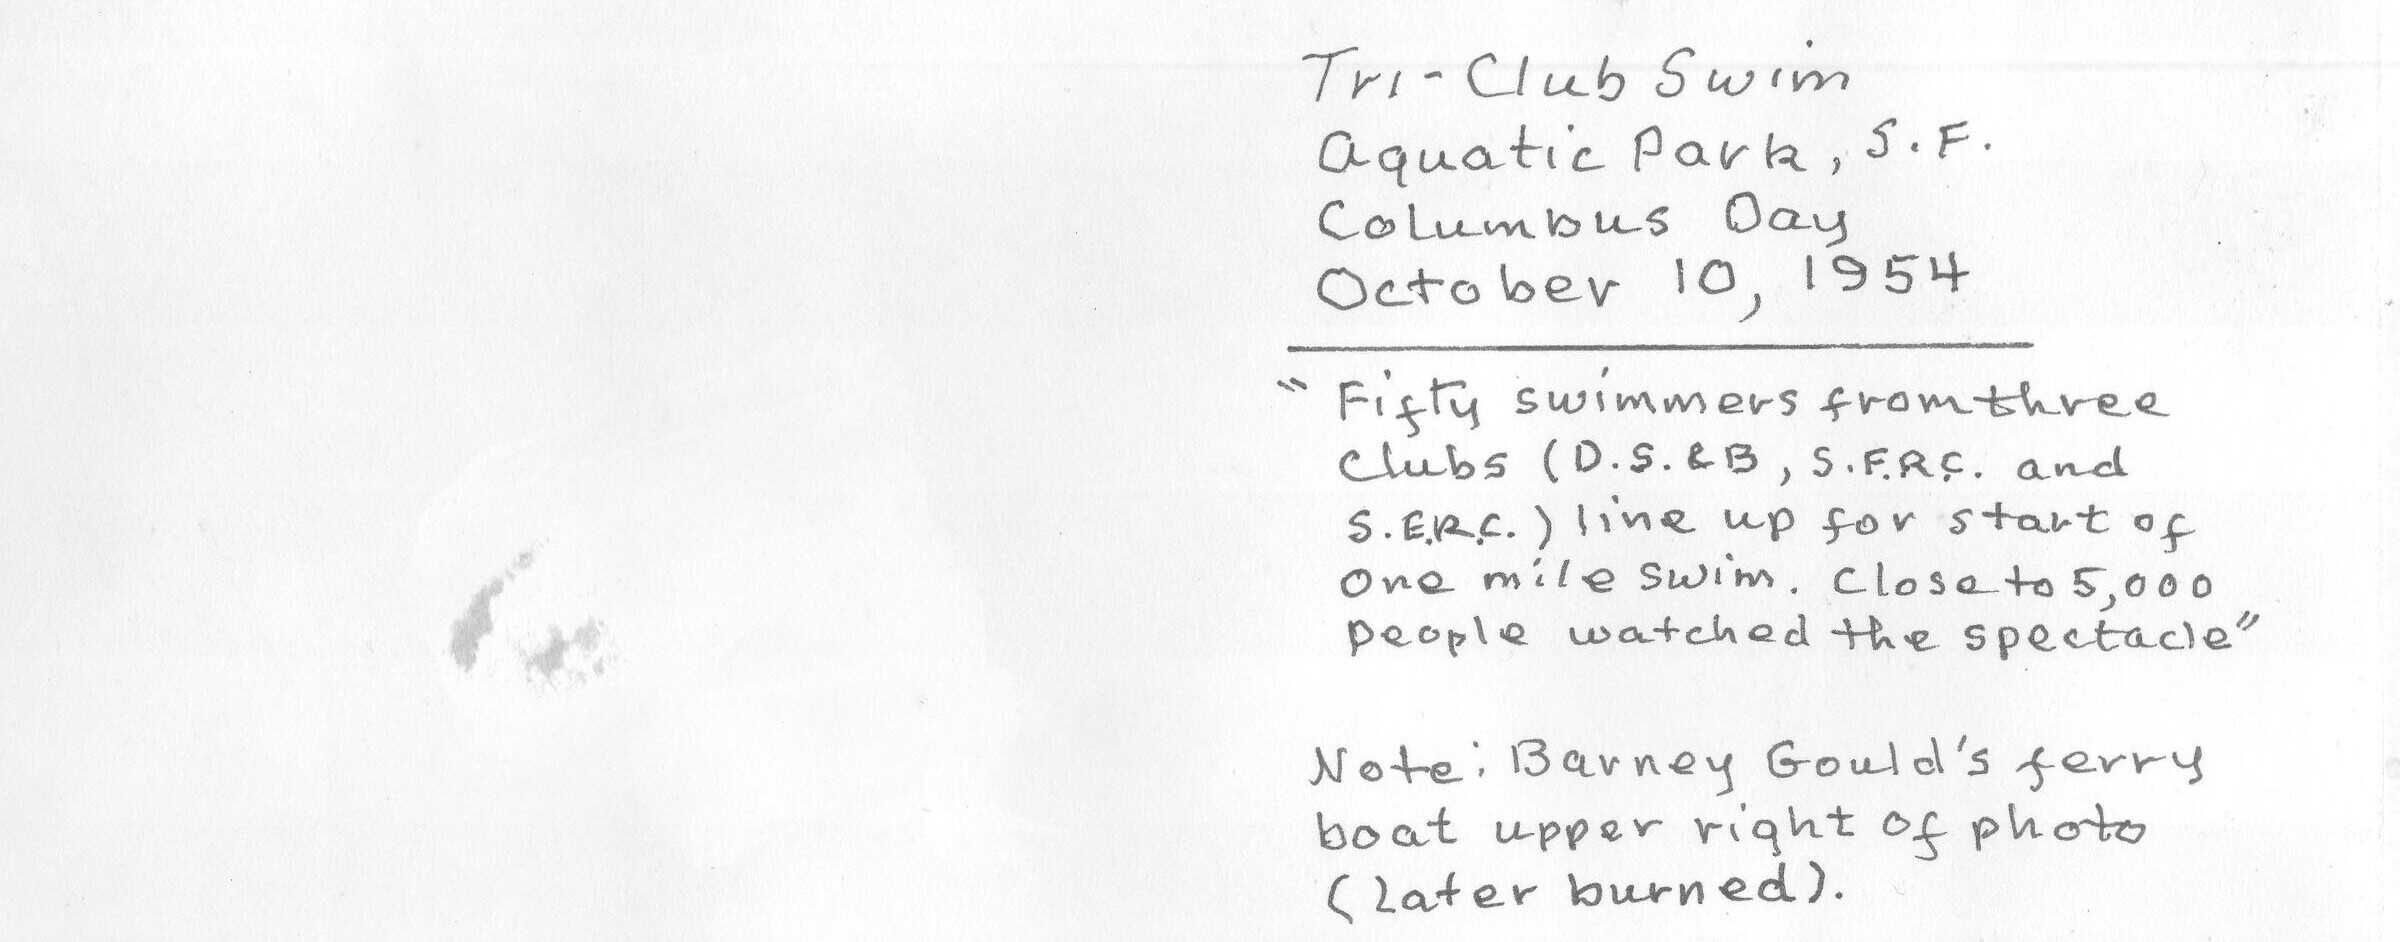 Tri-Club Swim
Aquatic Park, S.F.
Columbus Day
October 10, 1954
"Fifty swimmers from three
clubs (D.S.&B, S.F.R.C. and
S.E.R.C.) line up for start of
one mile swim. Close to 5,000
people watched the spectacle"
Note: Barney Gould's ferry
boat upper right of photo
(later burned).